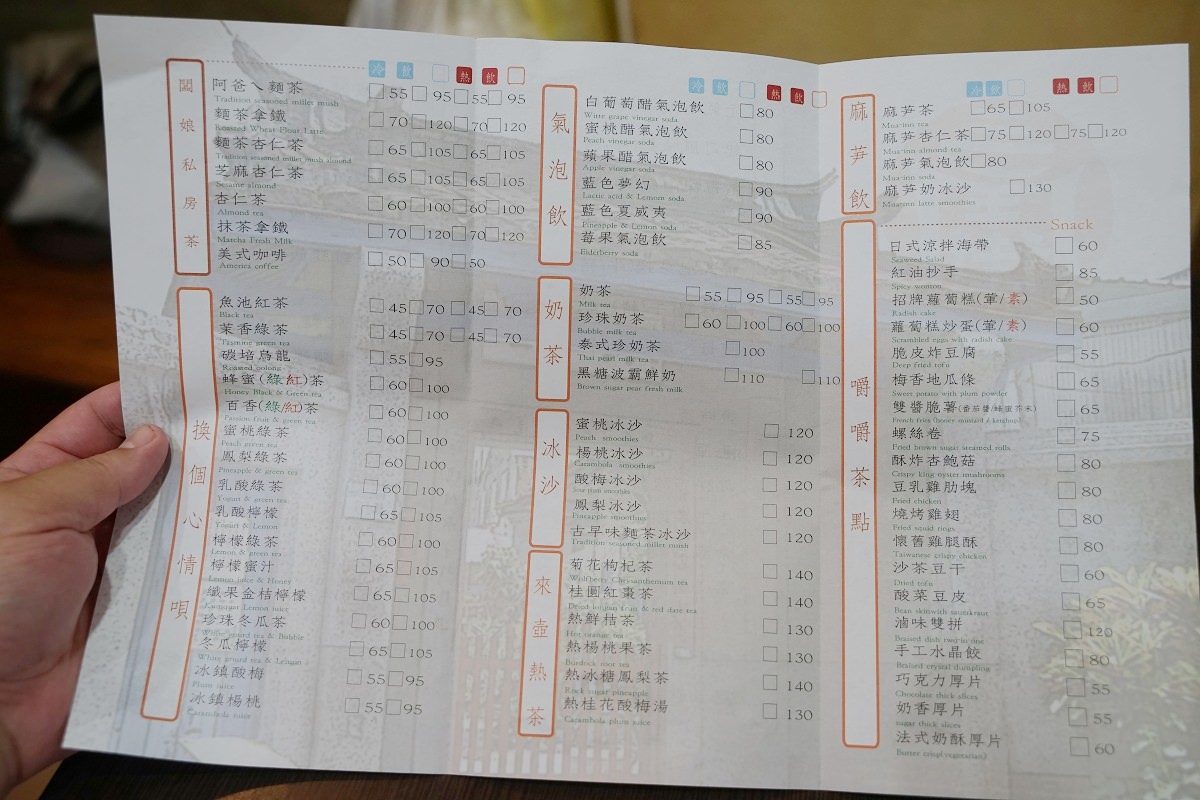 闆娘私房茶
冷 飲 熱 飲
阿爸ㄟ麵茶 55 95 55 95
Tradition seasoned millet mush
麵茶拿鐵 70 120 70 120
Roasted Wheat Flour Latte
麵茶杏仁茶 65 105 65 105
Tradition seasoned millet mush almond
芝麻杏仁茶 65 105 65 105
Sesame almond
杏仁茶 60 100 60 100
Almond tea
抹茶拿鐵 70 120 70 120
Matcha Fresh Milk
美式咖啡 50 90 50
America coffee
換個心情唄
魚池紅茶 45 70 45 70
Black tea
茉香綠茶 45 70 45 70
Jasmine green tea
碳培烏龍 55 95
Roasted oolong
蜂蜜(綠紅)茶 60 100
Honey Black & Green tea
百香(綠/紅)茶 60 100
Passion fruit & green tea
蜜桃綠茶 60 100
Peach green tea
鳳梨綠茶 60 100
Pineapple & green tea
乳酸綠茶 60 100
Yogurt & green tea
乳酸檸檬 65 105
Yogurt & Lemon
檸檬綠茶 60 100
Lemon & green tea
檸檬蜜汁 65 105
Lemon juice & Honey
纖果金桔檸檬 65 105
Kumquat Lemon juice
珍珠冬瓜茶 60 100
White gourd tea & Bubble
冬瓜檸檬 65 105
White gourd tea & Lemon
冰鎮酸梅 55 95
Plum juice
冰鎮楊桃 55 95
Carambola juice
氣泡飲
冷 飲 熱 飲
白葡萄醋氣泡飲 80
White grape vinegar soda
蜜桃醋氣泡飲 80
Peach vinegar soda
蘋果醋氣泡飲 80
Apple vinegar soda
藍色夢幻 90
Lactic acid & Lemom soda
藍色夏威夷 90
Pineapple & Lemon soda
莓果氣泡飲 85
Elderberry soda
奶茶
奶茶 55 95 55 95
Milk tea
珍珠奶茶 60 100 60 100
Bubble milk tea
泰式珍奶茶 100
Thai pearl milk tea
黑糖波霸鮮奶 110 110
Brown sugar pear fresh milk
冰沙
蜜桃冰沙 120
Peach smoothies
楊桃冰沙 120
Carambola smoothies
酸梅冰沙 120
Sour plum smoothies
鳳梨冰沙 120
Pineapple smoothies
古早味麵茶冰沙 120
Tradition seasoned millet mush
來壺熱茶
菊花枸杞茶 140
Wolfberry Chrysanthemum tea
桂圓紅棗茶 140
Dried longan fruit & red date tea
熱鮮桔茶 130
Hot orange tea
熱楊桃果茶 130
Burdock root tea
熱冰糖鳳梨茶 140
Rock sugar pineapple
熱桂花酸梅湯 130
Carambola plum juice
麻芛飲
冷 飲 熱 飲
麻芛茶 65 105
Mua-inn tea
麻芛杏仁茶 75 120 75 120
Mua-inn almond tea
麻芛氣泡飲 80
Mua-inn soda
麻芛奶冰沙 130
Muainn latte smoothies
嚼嚼茶點
Snack
日式涼拌海帶 60
Seaweed Salad
紅油抄手 85
Spicy wonton
招牌蘿蔔糕(葷/素) 50
Radish cake
蘿蔔糕炒蛋(葷/素) 60
Scrambled eggs with radish cake
脆皮炸豆腐 55
Deep fried tofu
梅香地瓜條 65
Sweet potato with plum powder
雙醬脆薯(番茄醬/蜂蜜芥末) 65
French fries (honey mustard / ketchup)
螺絲卷 75
Fried brown sugar steamed rolls
酥炸杏鮑菇 80
Crispy king oyster mushrooms
豆乳雞肋塊 80
Fried chicken
燒烤雞翅 80
Fried squid rings
懷舊雞腿酥 80
Taiwanese crispy chicken
沙茶豆干 60
Dried tofu
酸菜豆皮 65
Bean skin with sauerkraut
滷味雙拼 120
Braised dish two in one
手工水晶餃 80
Braised crystal dumpling
巧克力厚片 55
Chocolate thick slices
奶香厚片 55
sugar thick slices
法式奶酥厚片 60
Butter crisp(vegetarian)